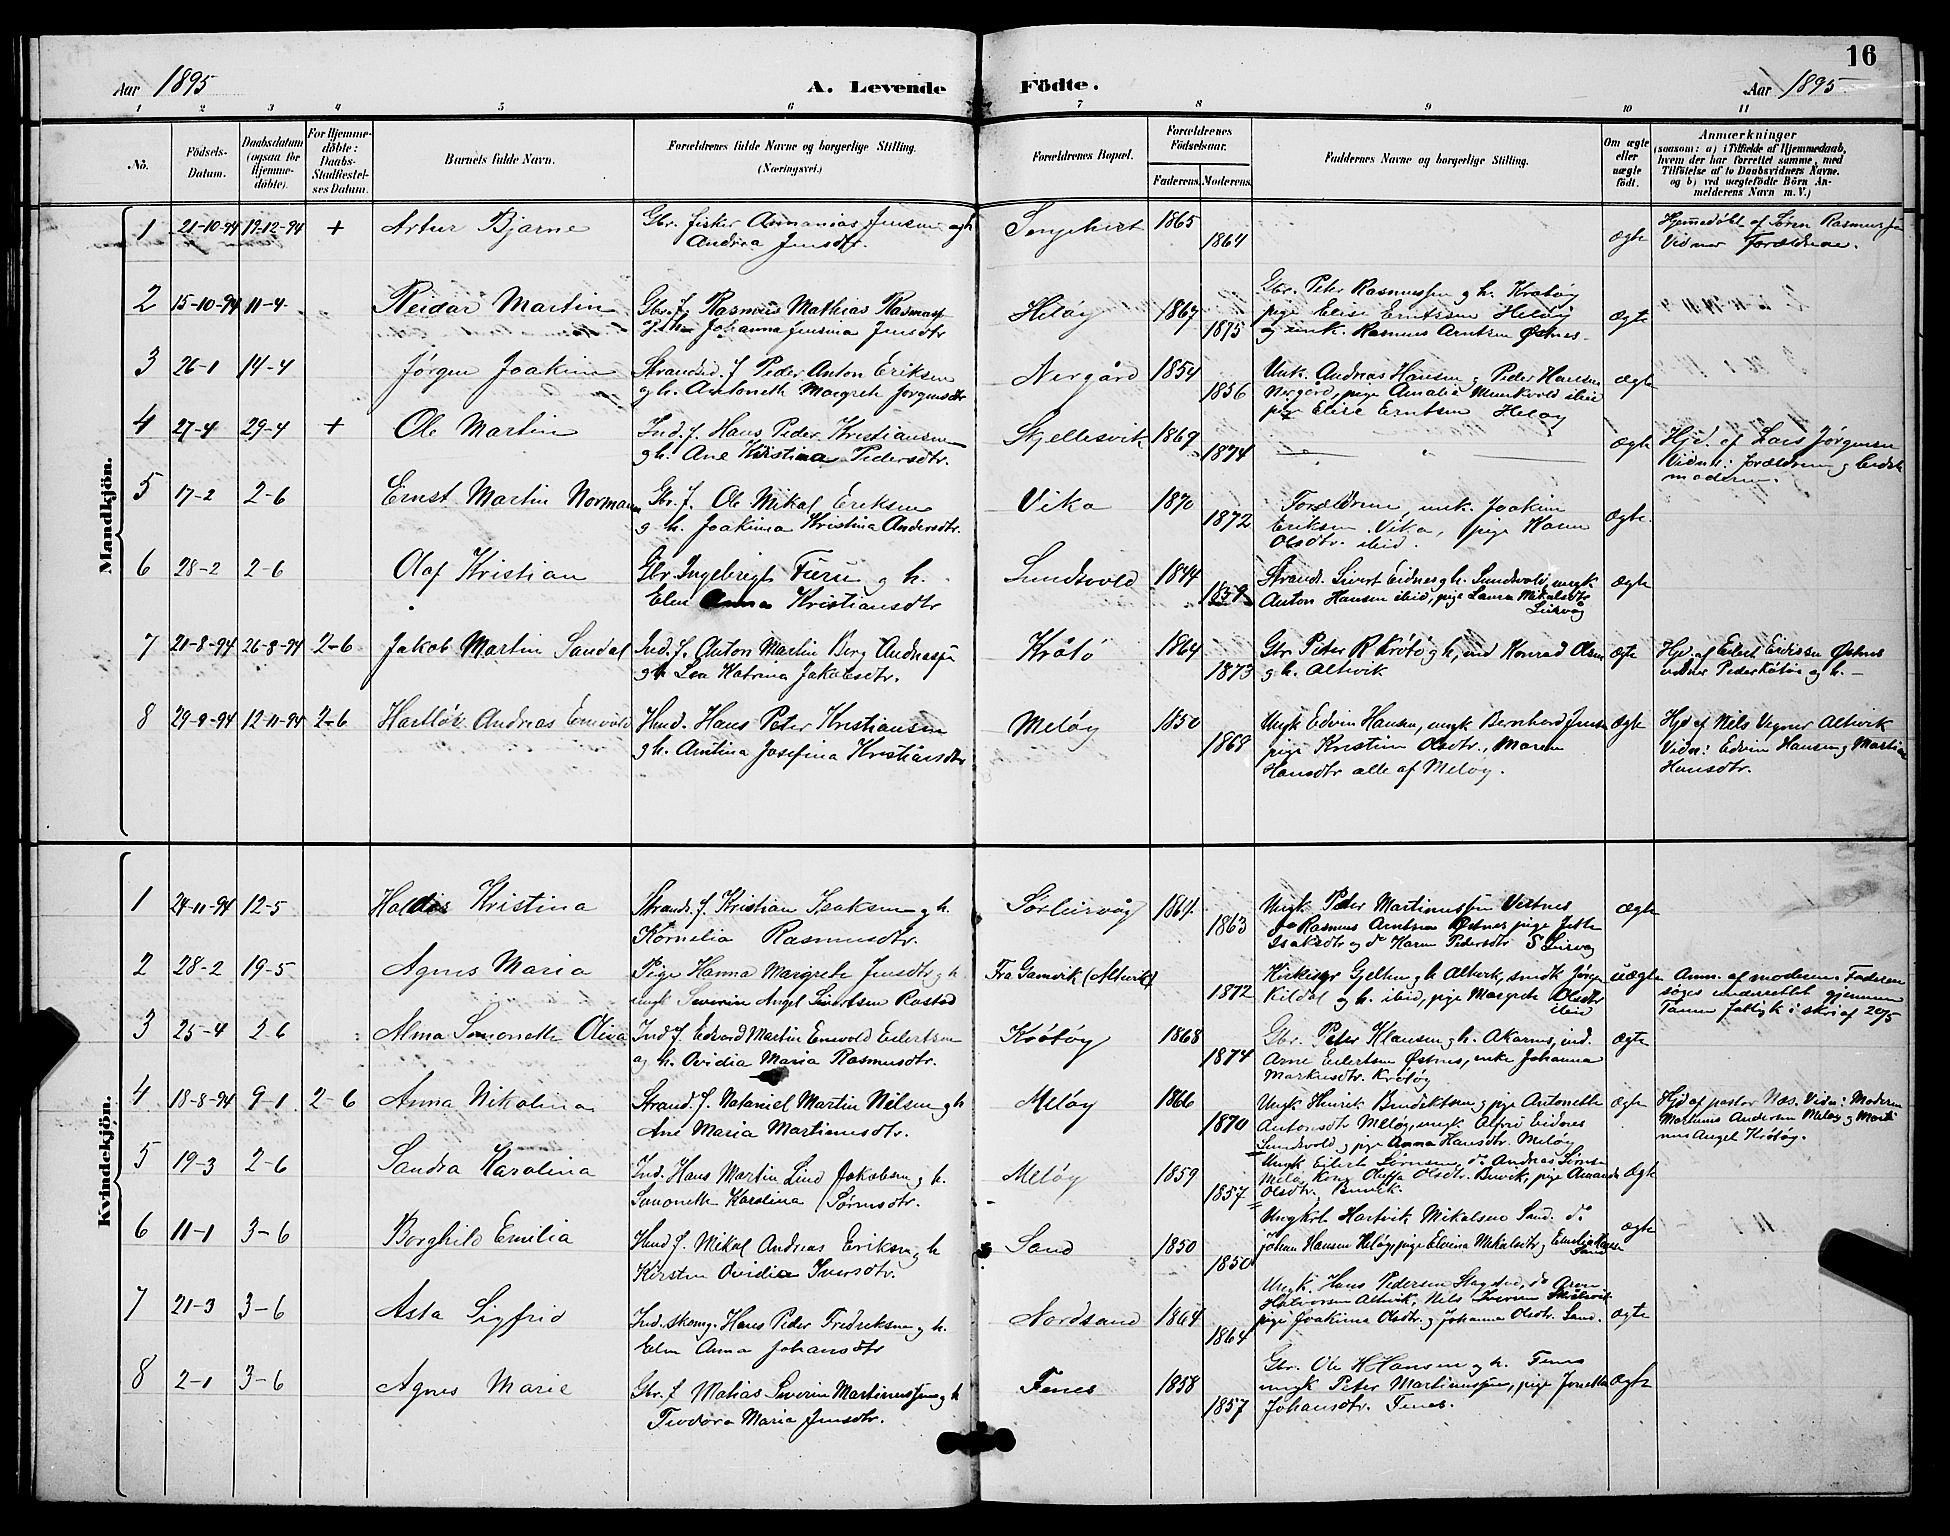 16
Aar 1895 A. Levende Födte. Aar 1895
1 2 3 4 5 6 7 8 9 10 11
No. Födsels-Datum. Daabsdatum (ogsaa for Hjemme-döbte). For Hjemme-döbte: Daabs-Stadfæstel-ses Datum. Barnets fulde Navn. Forældrenes fulde Navne og borgerlige Stilling. (Næringsvei.) Forældrenes Bopæl. Forældrenes Födselsaar. Faderens. Moderens. Faddernes Navne og borgerlige Stilling. Om ægte eller uægte födt. Anmærkninger
(saasom: a) i Tilfælde af Hjemmedaab,
hvem der har forrettet samme, med
Tilföielse af to Daabsvidners Navne,
og b) ved uægtefödte Börn An-
melderens Navn m. V.)
Mandkjön.
1 21-10-94 17-12-94 + Artur Bjarne Gbr. fisker Annanias Jensen og h. 1865 Hjemmedöbt af Sören Rasmussen
Andrea Jensdtr. 1864 ægte Vidner Forældrene.
2 15-10-94 11-4 Reidar Martin Gbr. f. Rasmus Mathias Helöy 1867 Gbr. Peter Rasmussen g h. Kratöy
Johanna Jensdtr 1875 pige Elise Erntsen Helöy ægte
og unk. Rasmus Arntsen Østnes
3 26-1 14-4 Jörgen Joakim Strands. f Peder Anton Eriksen Nergård 1854 Unk. Andreas Hansen g Peder Hansen ægte
g h. Antoneth Margrete Jörgensdtr 1856 Nergård, pige Amalie Munkvold ibid
pige Elise Erntsen Helöy
4 27-4 29-4 + Ole Martin Ind. f. Hans Peder Kristiansen Skjellesvik 1869 ægte Hjd. af Lars Jörgensen
g h. Ane Kristina Pedersdtr. 1874 Vidner: forældrene g
moderen.
5 17-2 2-6 Ernst Martin Normann Gbr. f. Ole Mikal Eriksen Vika 1870 Forældrene, unk. Joakim
g h. Joakima Kristina Andersdtr. 1872 Eriksen Vika, pige Hanna ægte.
Olsdtr. ibid.
6 28-2 2-6 Olaf Kristian Gbr. Ingebrigt Furu g h. Sundsvold 1844 Strands. Sivert Eidnes g h. Sundsvold, ungk. ægte
Elen Anna Kristiansdtr 1859 Anton Hansen ibid, pige Laura Mikalsdtr
Leirvåg
7 21-8-94 26-8-94 2-6 Jakob Martin Sandal Ind. f. Anton Martin Berg Andreass Kråtö 1864 Gbr Peter R Krötö g h, ind Konrad Olsen ægte Hjd. af Eilert Erikssen Østnes
g h Lea Katrina Jakobsdtr. 1873 g h. Altvik vidner Peder g h.
8 29-9-94 12-11-94 2-6 Andreas Hmd. Hans Peter Kristiansen Melöy 1850 Ungk Edvin Hansen, ungk Bernhard Jensen ægte Hjd af Nils Vegner Altvik
g h. Arntina Josefina Kristiansdtr 1868 pige Kristine Olsdtr, Maren Vidn: Edvin Hansen g Martine
Hansdtr alle af Melöy. Hansdtr.
Kvindekjön.
1 24-11-94 12-5 Haldis Kristina Strands. f. Kristian Isaksen g h. Sörleirvåg 1864. Ungk Peter Martinussen ægte
Kornelia Rasmusdtr. 1863 do Rasmus Arntsen Østnes pige Jette
Isaksdtr og do Karen Pedersdtr S Leirvåg
2 28-2 19-5 Agnes Maria Pige Hanna Margrete Jensdtr g Fra Gamvik (Altvik) Kirkesgr Gjelten g h Altvik, smdk Jörgen uægte Anm. af moderen. Faderen
ungk Severin Angel Sivertsen Rastad 1872 Kildal og h. ibid, pige Margrete Olsdtr söges underrettet gjennem
ibid
3 25-4 2-6 Alma Simonette Oliva Ind f. Edvard Martin Emvold Eilertsen Krötöy 1868 Gbr. Peter Klausen g h. Akarnes, ind. ægte
og h. Ovidia Maria Rasmusdtr. 1874 Arne Eilertsen Østnes, enke Johanna
Markusdtr. Krötöy
4 18-8-94 9-1 2-6 Anna Nikolina Strand. f. Nataniel Martin Nilsen g h Melöy 1866 Ungk Henrik Bendiktsen g pige Antonette ægte Hjd af pastor Næs. Vidn: Moderen
Ane Maria Martinusdtr. 1870 Antonsdtr Melöy, ungk Alfred Eidnes Martinus Andersen Melöy g Marti-
Sundsvold g pige Anna Hansdtr. Melöy nus Angel Krötöy.
5 19-3 2-6 Sandra Karolina Ind. Hans Martin Lind Jakobsen g h. Melöy 1859 Ungk Eilert Sörensen, do Andreas Sörensen ægte
Simonette Karolina Sörensdtr. 1857 Olsdtr. Buvik, pige Amanda
Olsdtr. Buvik.
6 11-1 3-6 Borghild Emilia Hmd f. Mikal Andreas Eriksen g h Sand 1850 Ungkrl Hartvik Mikalsen Sand. do ægte
Kirsten Ovidia Iversdtr. 1850 Johan Hansen Helöy, pige Elvina Mikalsdtr g Emelia Hansen
Sand
7 21-3 3-6 Asta Sigfrid Ind. skomg. Hans Peder Fredriksen g h. Nordsand 1864 Ungk. Hans Pedersen do Aron
Elen Anna Johansdtr 1864 Halvorsen Altvik, Nils Iversen ægte
pige Joakima Olsdtr. g Johanna Olsdtr. Sand.
8 2-1 3-6 Agnes Marie Gbr. f Matias Severin Martinussen g h Fenes 1858 Gbr. Ole H Hansen g h. Fenes ægte
Teodora Maria Jensdtr. 1857 ungk Peter Martinussen, pige Jonetta
Johansdtr. Fenes.